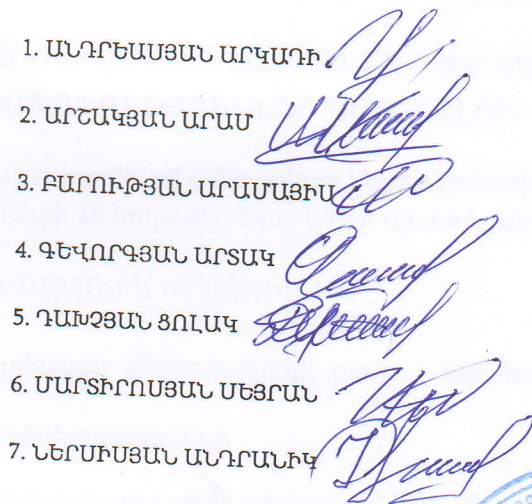 1. ԱՆԴՐԵԱՍՅԱՆ ԱՐԿԱԴԻ
2. ԱՐՇԱԿՅԱՆ ԱՐԱՄ
3. ԲԱՐՈՒԹՅԱՆ ԱՐԱՄԱՅԻՍ
4. ԳԵՎՈՐԳՅԱՆ ԱՐՏԱԿ
5. ԴԱԽՉՅԱՆ ՑՈԼԱԿ
6. ՄԱՐՏԻՐՈՍՅԱՆ ՍԵՅՐԱՆ
7. ՆԵՐՍԻՍՅԱՆ ԱՆԴՐԱՆԻԿ